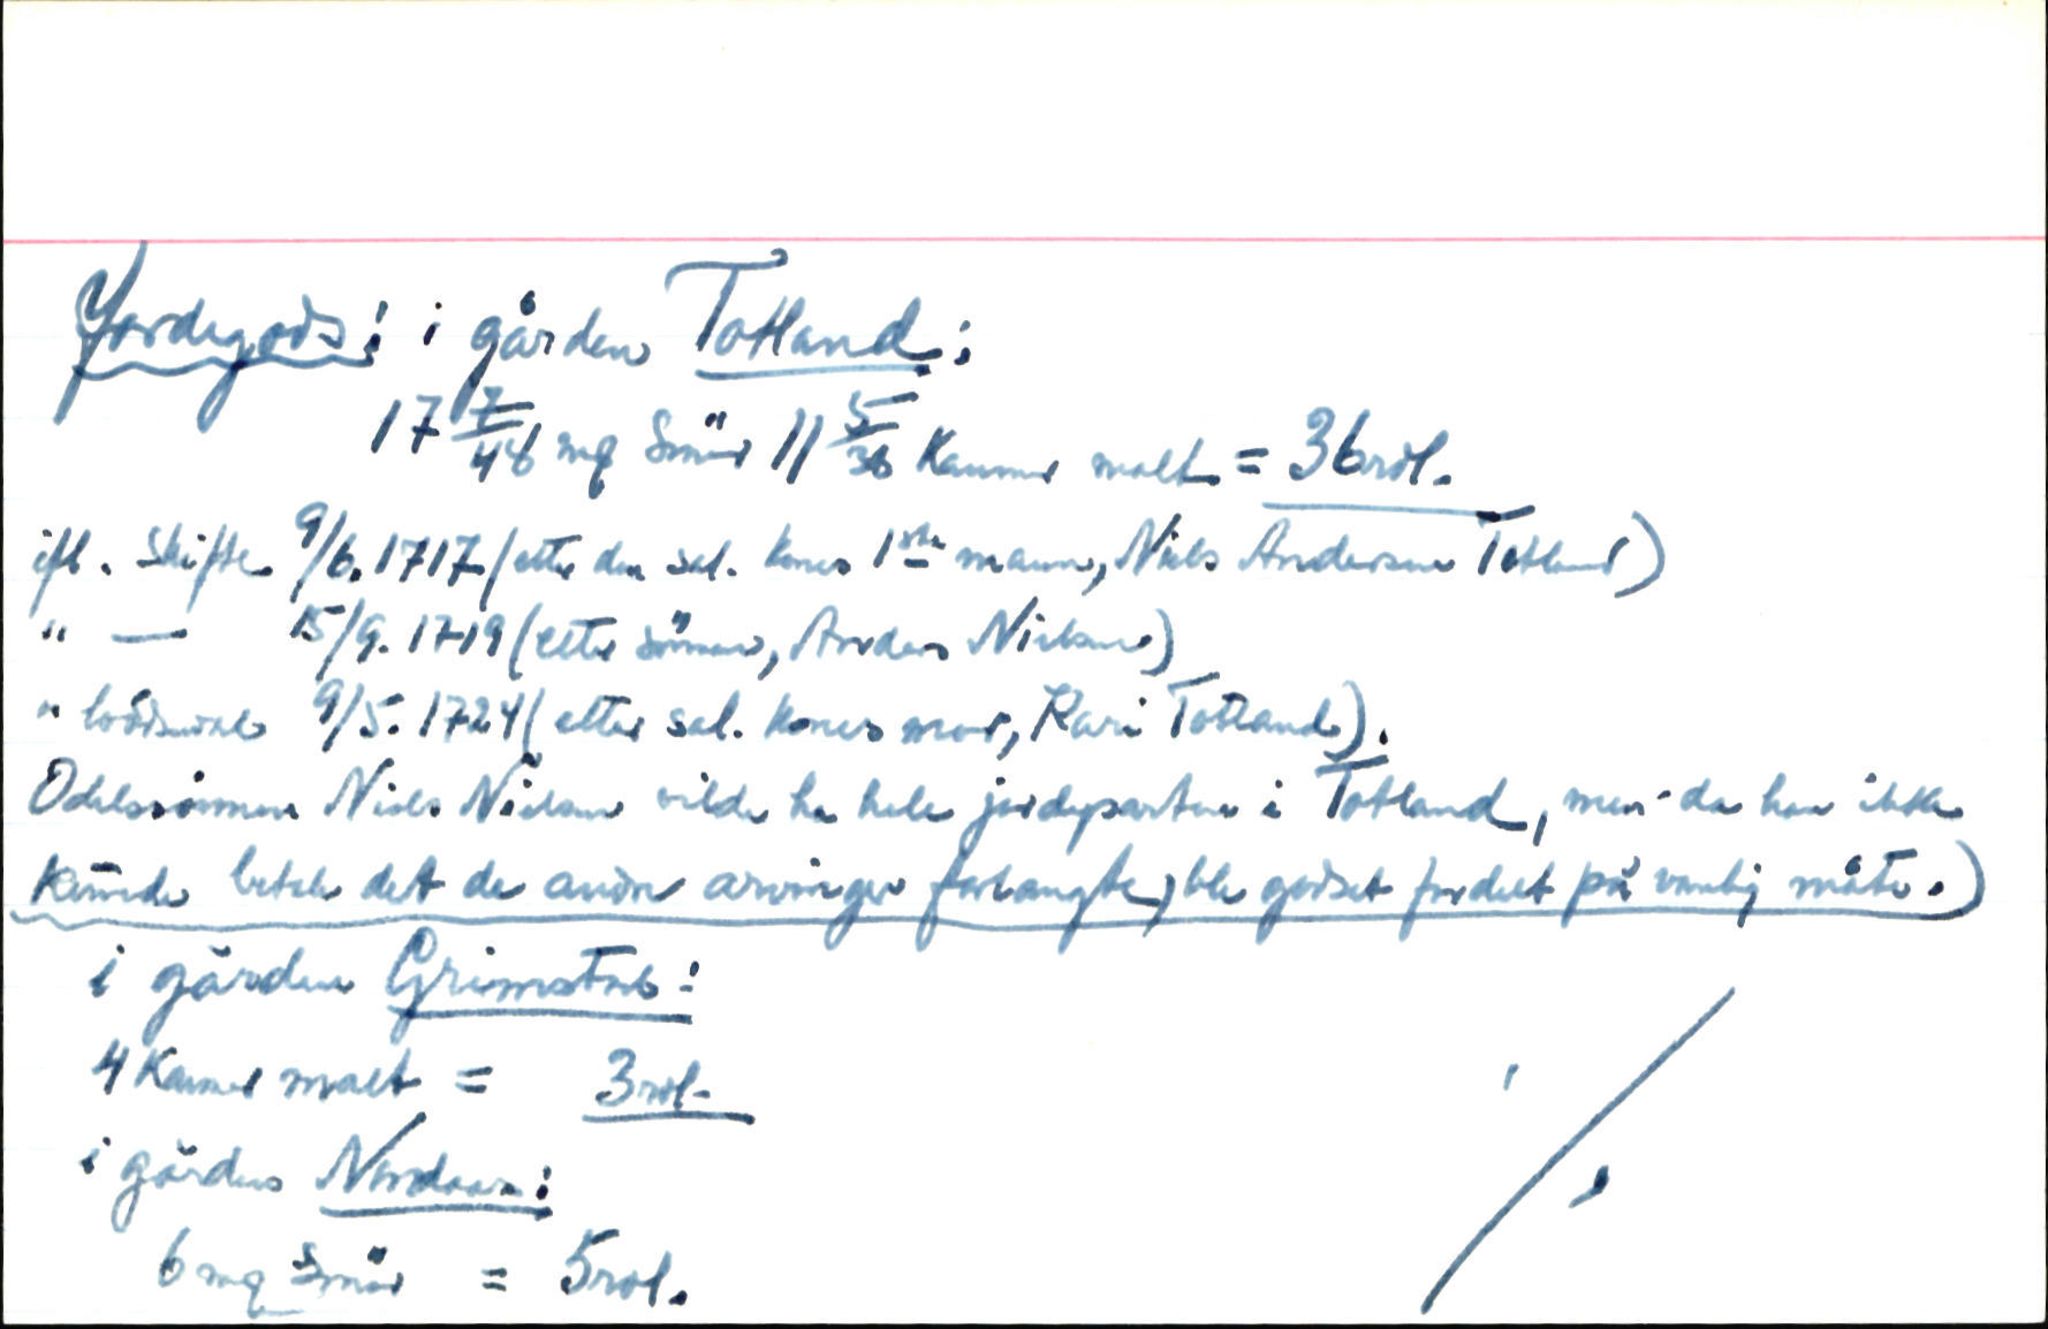 Jordegods: i gården Totland:
17 7/48 mg Smör 11 5/36 Kanner malt = 36 rdl.
ifl. Skifte 9/6. 1717 (etter den sal. kones 1ste mann, Niels Andersen Totland)
" — 15/9. 1719 (etter sönnen, Anders Nielsen)
" 9/5. 1724 (etter sal. kones mor, Kari Totland).
Odelssönnen Niels Nielsen vilde ha hele jordeparten i Totland, men da han ikke
kunde betale det de andre arvinger forlangte, ble godset fordelt på vanlig måte.)
i gården Grimstad:
4 Kanner malt = 3 rdl.
i gården Nordaas:
6 mg Smör = 5 rdl.